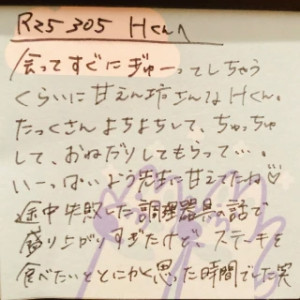 R25 305 Hくんへ
会ってすぐにぎゅーってしちゃう
くらいに甘えん坊さんなHくん。
たっくさんよちよちして、ちゅっちゅ
して、おねだりしてもらって…。
いーっぱいよう先生に甘えてたね♡
途中失敗した調理器具の話で
盛り上がりすぎたけど、ステーキを
食べたいととにかく思った時間でした笑